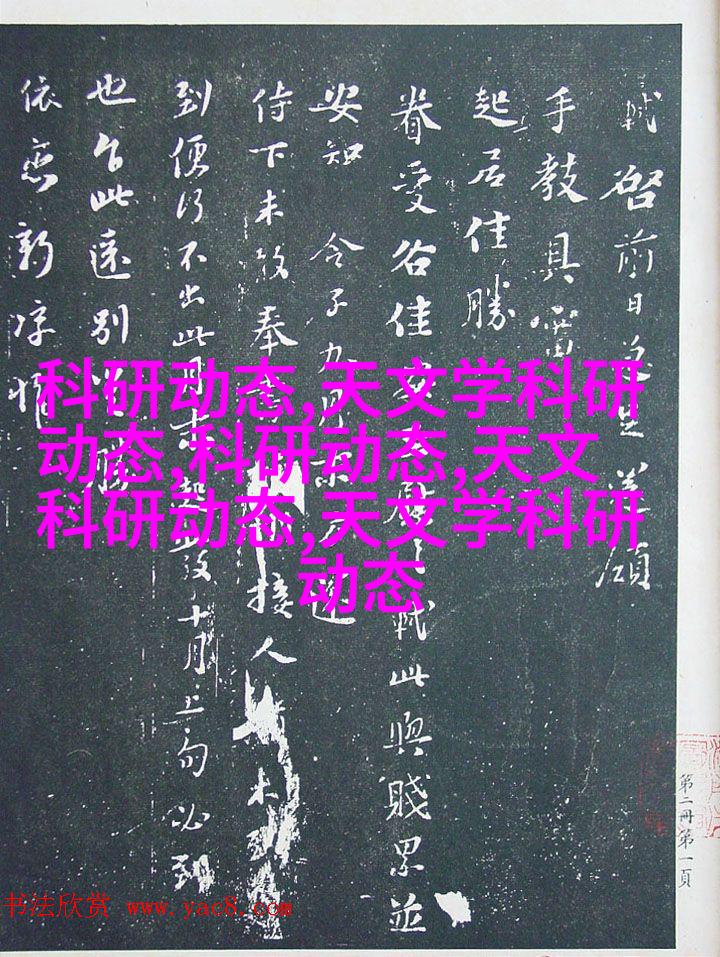 軾啓前日
手教具審
起居佳勝
眷愛各佳安軾此與賤累並
安知 令子九月末
侍下未敢奉接人
到便行不出此月末起發十月上旬必到
也乍此遠別
依戀新涼惟
科研动态,天文学科研
动态,科研动态,天文
科研动态,天文学科研
动态
第二冊第一頁
书法欣赏 www.yac8.com